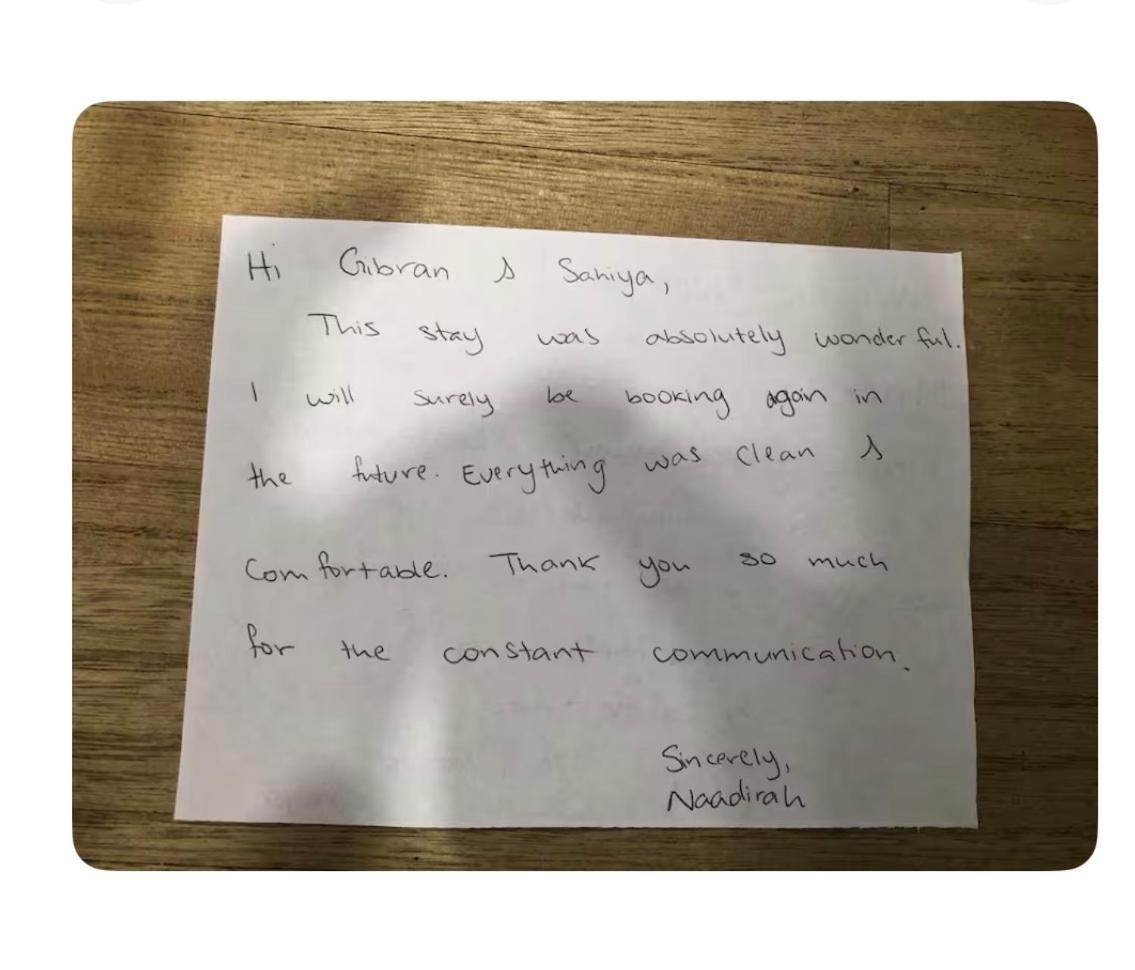 Hi Gibran & Sahiya,
This stay was absolutely wonderful.
I will surely be booking again in
the future. Everything was clean &
Comfortable. Thank you so much
for the constant communication.
Sincerely,
Naadirah